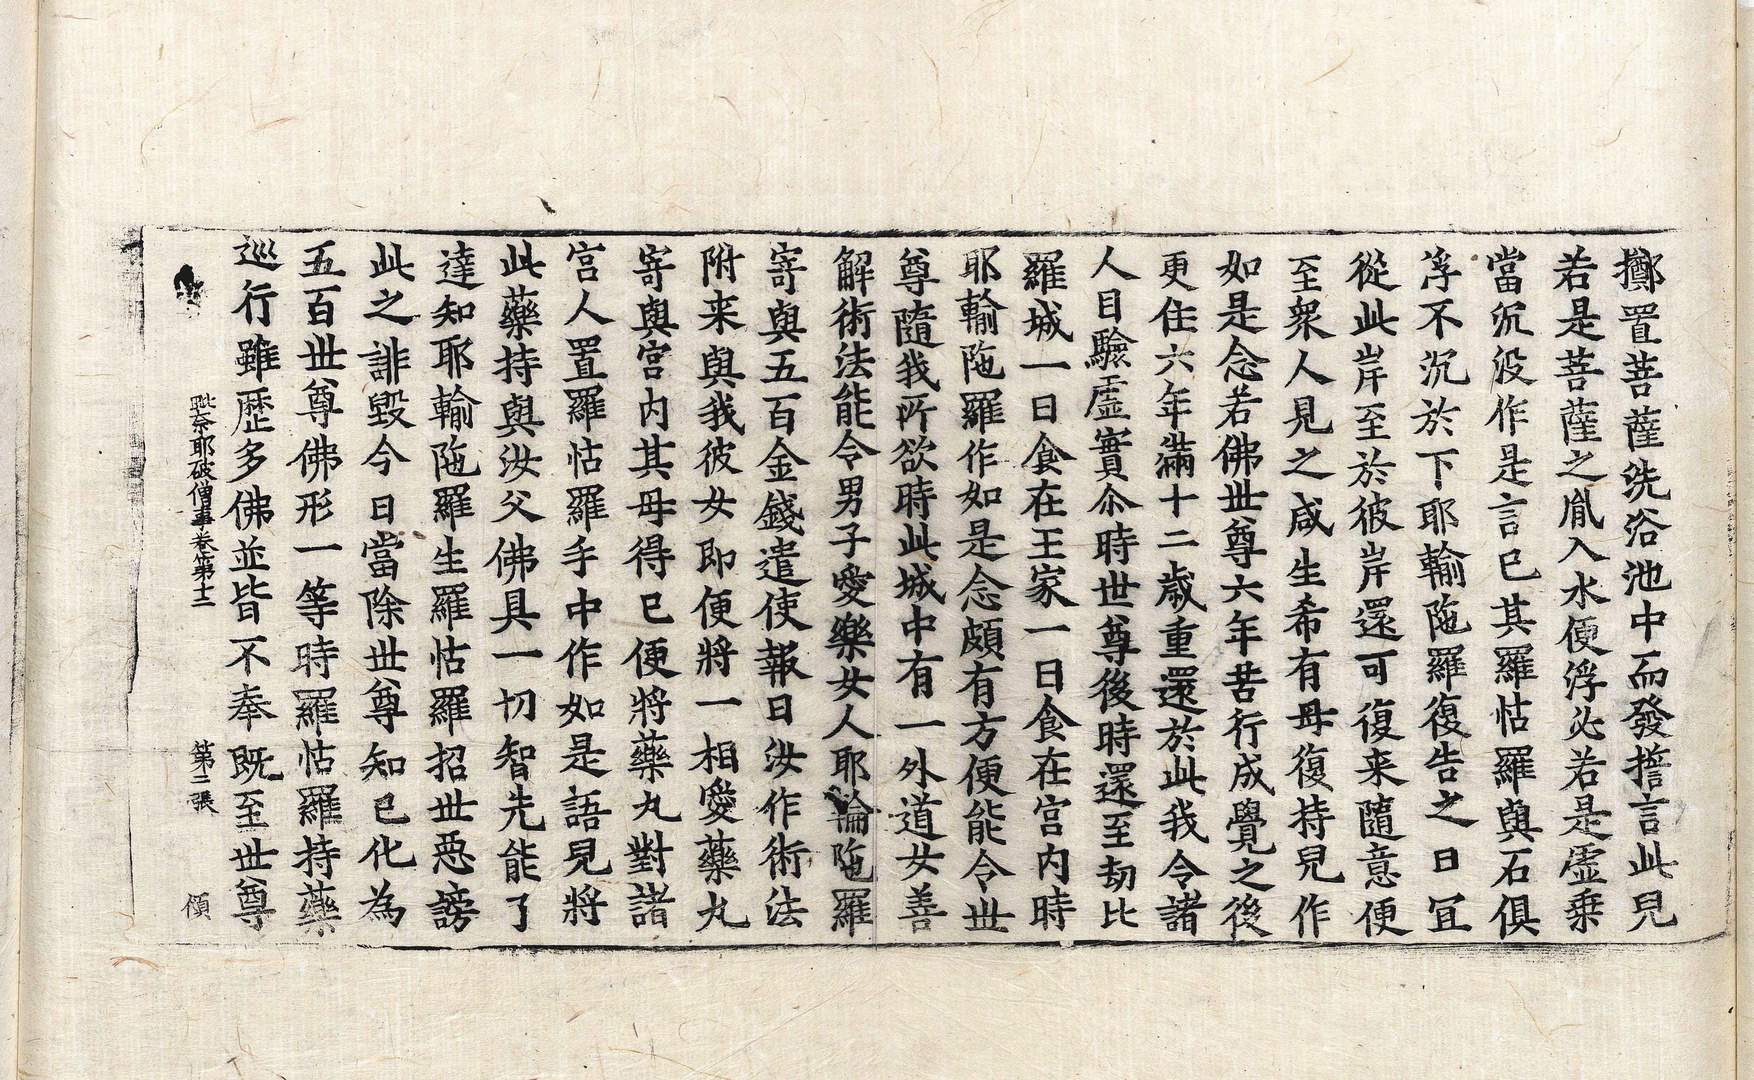 擲置菩薩洗浴池中而發擔言此兒
若是菩薩之胤入水便浮必若是虛乗
當沉沒作是言已其羅怙羅與石俱
浮不沉於下耶輸陁羅復告之曰冝
從此岸至於彼岸還可復来隨意便
至衆人見之咸生希有母復持兒作
如是念若佛世尊六年苦行成覺之後
更住六年滿十二歲重還於此我令諸
人目驗虛實尒時世尊後時還至劫比
羅城一日食在王家一日食在宫内時
耶輸陁羅作如是念頗有方便能令世
尊隨我所欲時此城中有一外道女善
解術法能令男子愛樂女人耶輪陁羅
寄與五百金錢遣使報曰汝作術法
附来與我彼女即便將一相愛藥丸
寄與宫内其母得已便將藥丸對諸
宫人置羅怙羅手中作如是語兒將
此藥持與汝父佛具一切智先能了
達知耶輸陁羅生羅怙羅招世惡謗
此之誹毀今日當除世尊知已化為
五百世尊佛形一等時羅怙羅持藥
巡行雖歷多佛並皆不奉既至世尊
毗奈耶破僧事卷第十二　第二張　頎